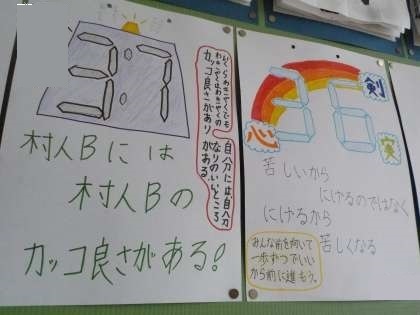 3:7
いくらわきやくでも
わきやくはわきやくの
カッコ良さがあり
自分には自分
なりのいいところ
がある。
村人Bには
村人Bの
カッコ良さがある!
36
心
剣
苦しいから
にげるのではなく
にげるから
苦しくなる
みんな前を向いて
一歩ずつでいい
から前に進もう。